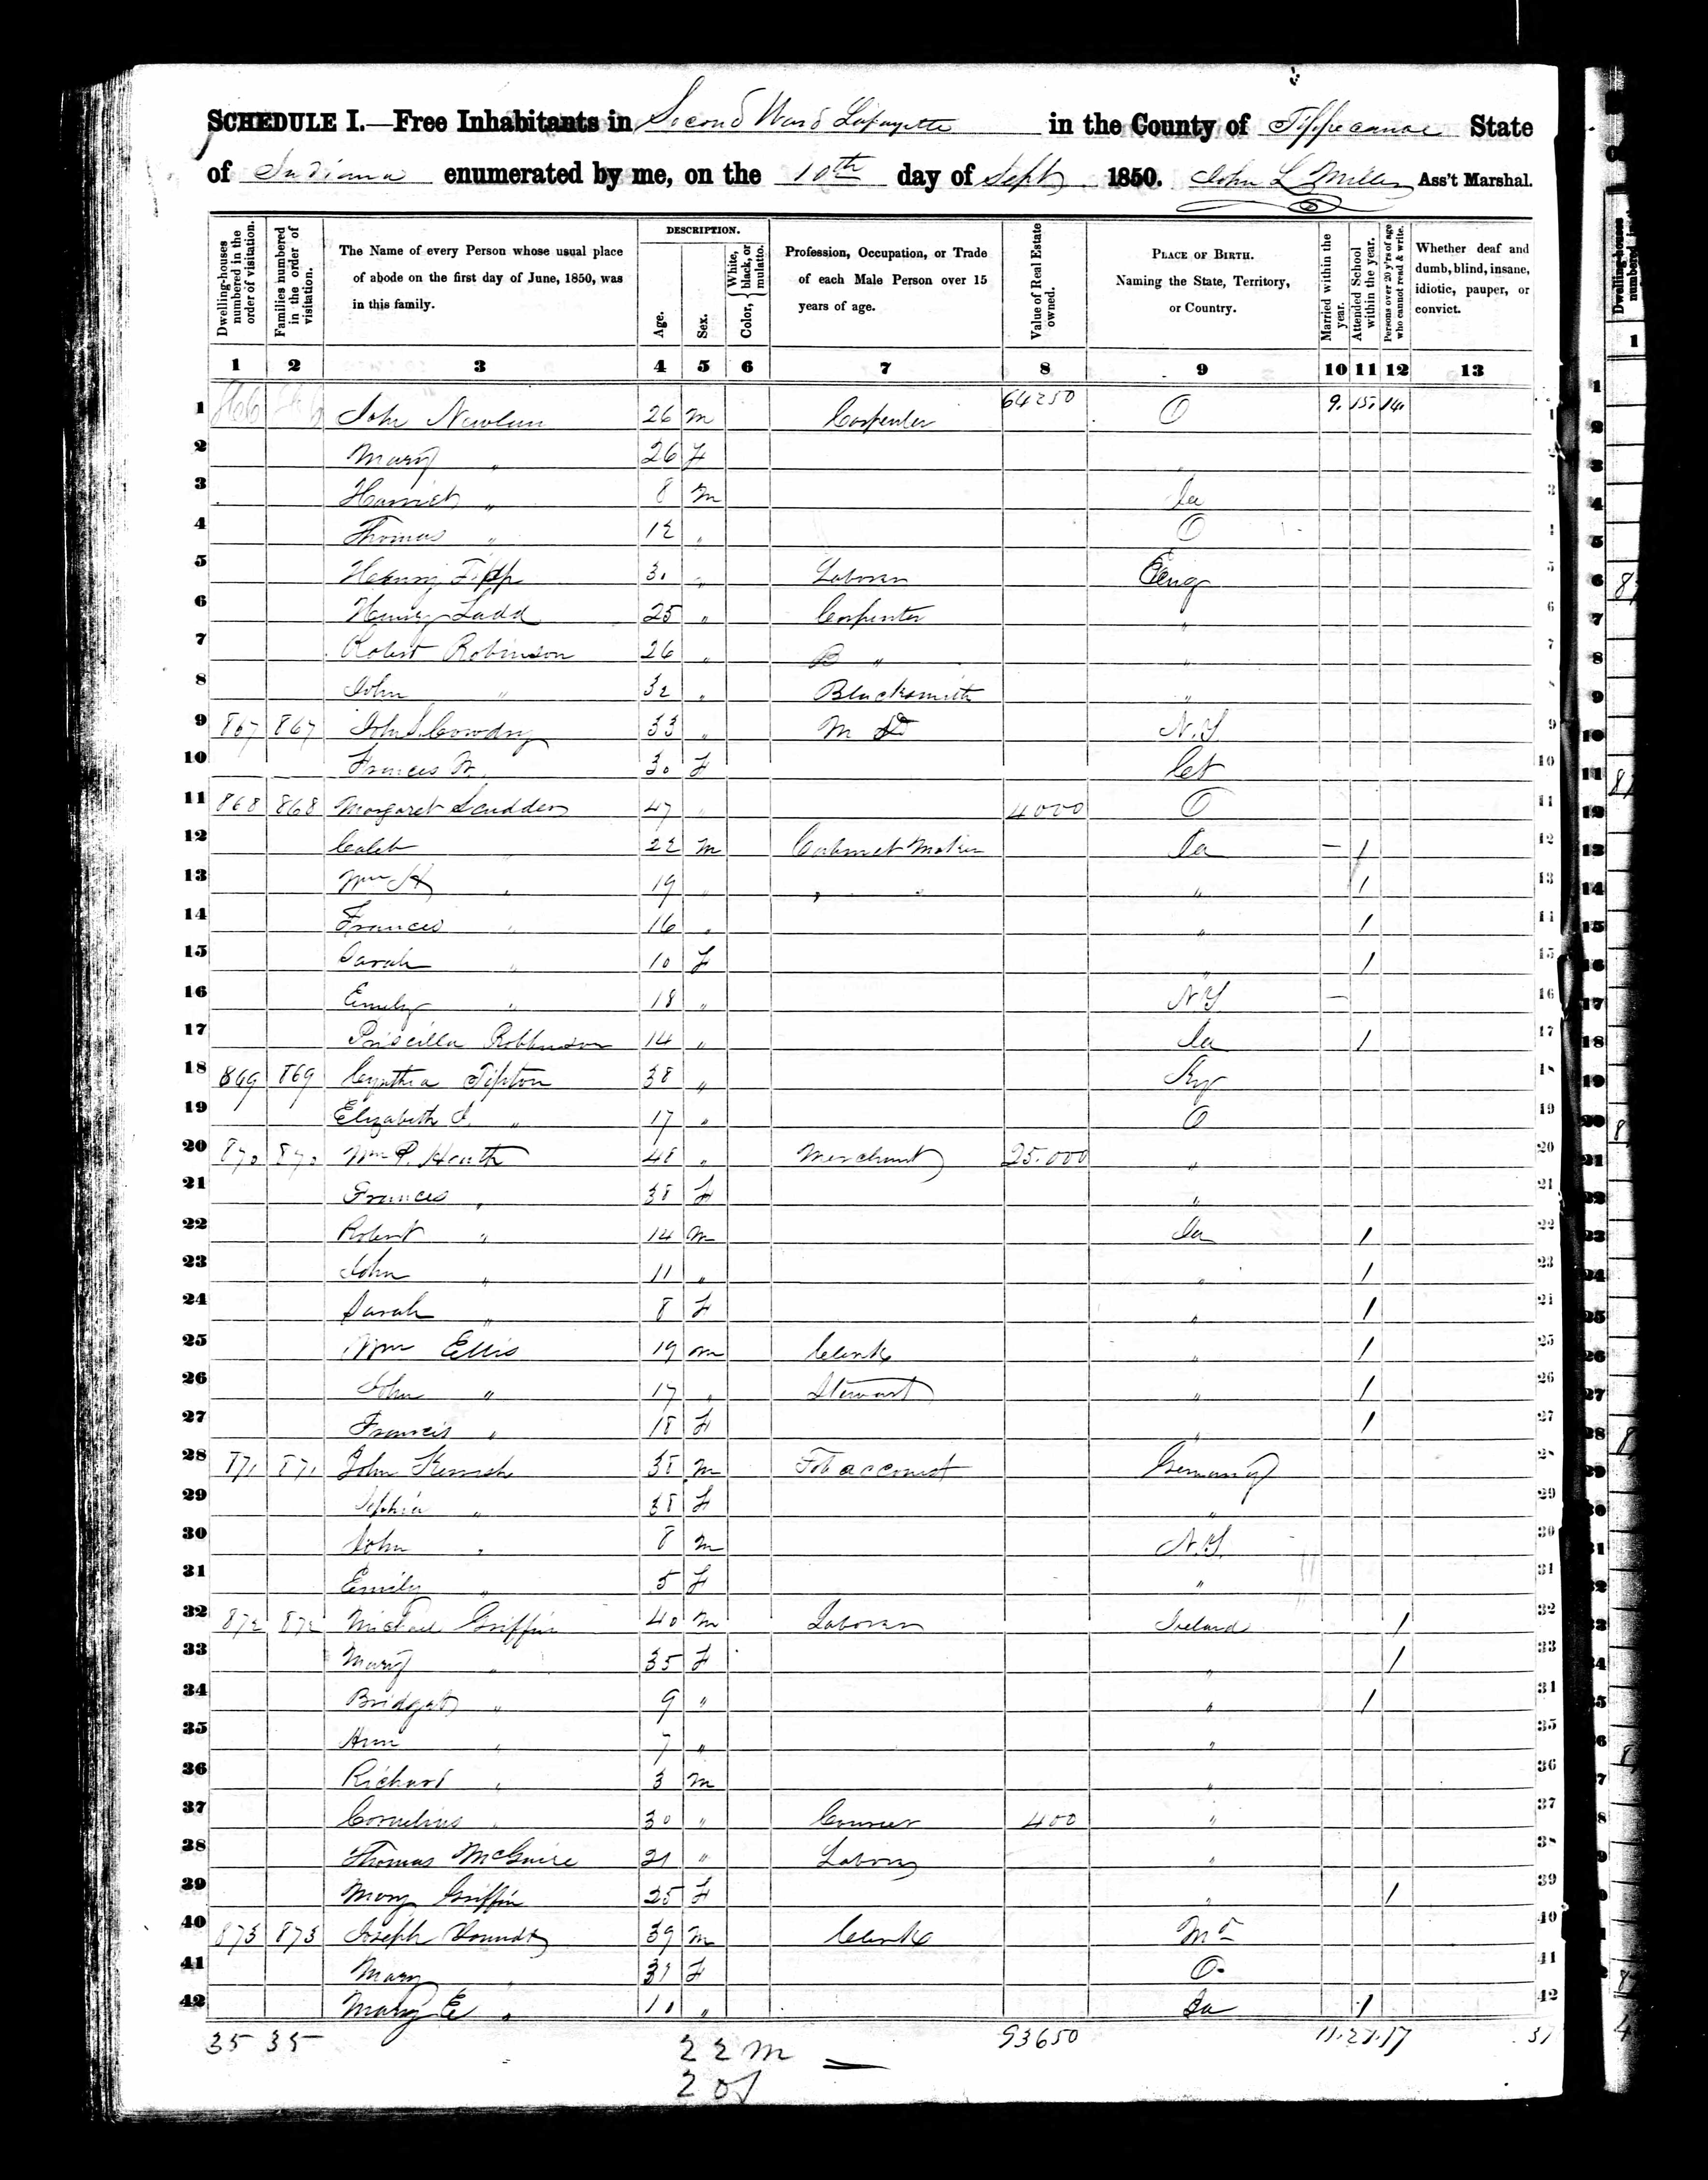 SCHEDULE I.—Free Inhabitants in Second Ward Lafayette in the County of Tippecanoe State
of Indiana enumerated by me, on the 10th day of Sept 1850. John L Miller Ass't Marshal.
Dwelling-houses numbered in the order of visitation.
Families numbered in the order of visitation.
The Name of every Person whose usual place of abode on the first day of June, 1850, was in this family.
DESCRIPTION.
Age.
Sex.
Color, { White, black, or mulatto.
Profession, Occupation, or Trade of each Male Person over 15 years of age.
Value of Real Estate owned.
PLACE OF BIRTH. Naming the State, Territory, or Country.
Married within the year.
Attended School within the year.
Persons over 20 y'rs of age who cannot read & write.
Whether deaf and dumb, blind, insane, idiotic, pauper, or convict.
1 2 3 4 5 6 7 8 9 10 11 12 13
64250 9. 15. 14.
1 John Newlun 26 m Carpenter O 1
2 Mary " 26 F " 2
3 Harriet " 8 m Ia 3
4 Thomas " 12 " O 4
5 Henry 30 " Laborer Eng 5
6 Henry Ladd 25 " Carpenter " 6
7 Robert Robinson 26 " B " " 7
8 John " 32 " Blacksmith " 8
9 867 867 John S. Cowdry 33 " M D N.Y 9
10 Frances W. 30 F Ct 10
11 868 868 Margaret Scudder 47 " 4000 O 11
12 Caleb " 22 m Cabinet Maker Ia — / 12
13 Wm H " 19 " " " " / 13
14 Frances " 16 " " / 14
15 Sarah " 10 F " / 15
16 Emily " 18 " N.Y — 16
17 Priscilla Robbinson 14 " Ia / 17
18 869 869 Cynthia Tipton 38 " Ky 18
19 Elizabeth J. " 17 " O 19
20 870 870 Wm P. Heath 48 " Merchant 25.000 " 20
21 Frances " 38 F " 21
22 Robert " 14 m Ia / 22
23 John " 11 " " / 23
24 Sarah " 8 F " / 24
25 Wm Ellis 19 m Clerk " / 25
26 John " 17 " Stewart " / 26
27 Francis " 18 F " / 27
28 871 871 John 38 m Tobacconist Germany 28
29 Sophia " 38 F " 29
30 John " 8 m N.Y. 30
31 Emily " 5 F " 31
32 872 872 Michael Griffin 40 m Laborer Ireland / 32
33 Mary " 35 F " / 33
34 Bridget " 9 " " / 34
35 Ann " 7 " " 35
36 Richard " 3 m " 36
37 Cornelius " 30 " 400 " 37
38 Thomas McGuire 21 " Labory " 38
39 Mary Griffin 25 F " / 39
40 873 873 Joseph 39 m Clerk Md 40
41 Mary " 31 F O. 41
42 Mary E " 10 " Ia / 42
35 35 93650 11. 27. 17 31
22 m —
20 f